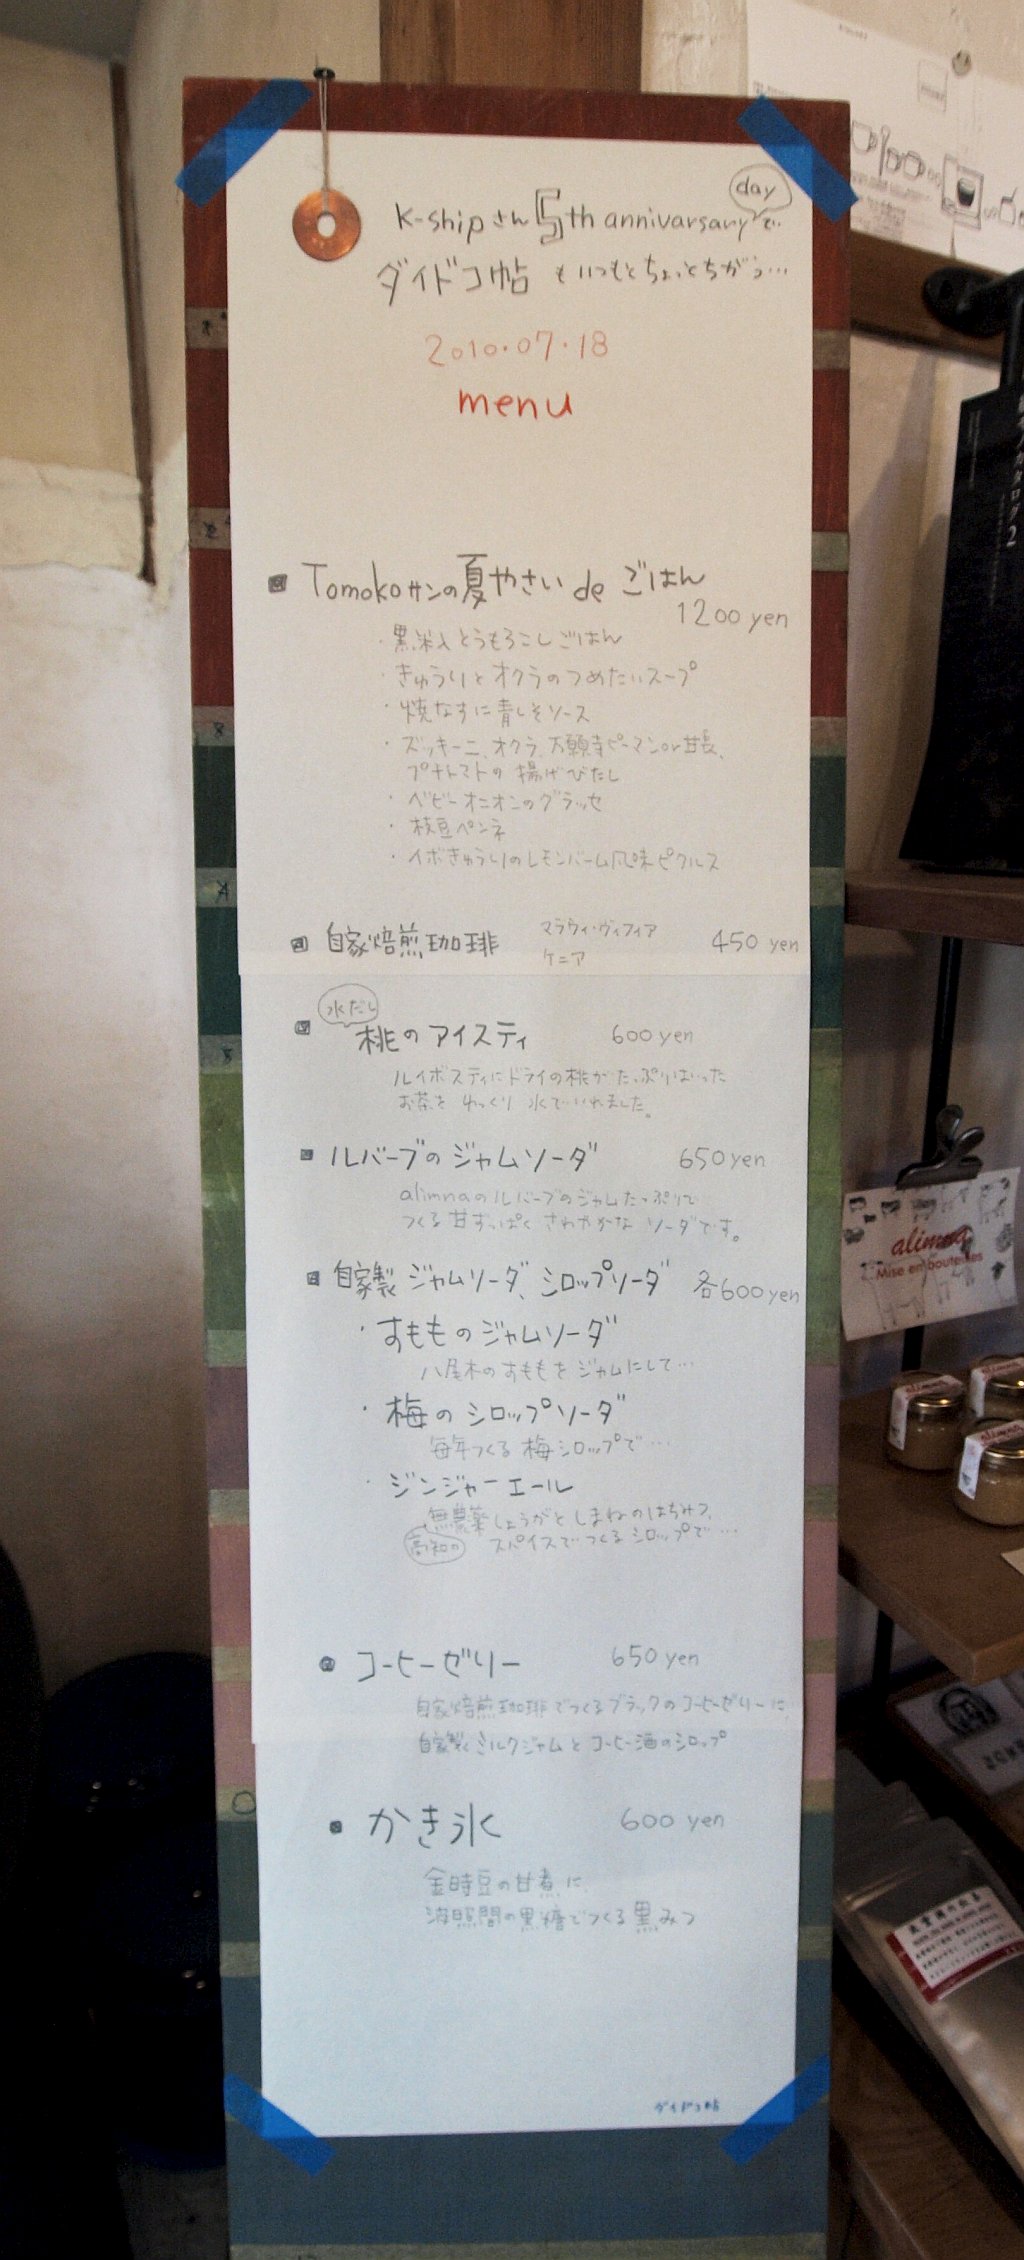 K-shipさん 5th annivarsary day で
ダイドコ帖 もいつもとちょっとちがう…
2010.07.18
menu
Tomokoサンの夏やさい de ごはん
1200 yen
・黒米入とうもろこしごはん
・きゅうりとオクラのつめたいスープ
・焼なすに青しそソース
・ズッキーニ、オクラ、万願寺ピーマンor甘長、
プチトマトの揚げびたし
・ベビーオニオンのグラッセ
・枝豆ペンネ
・イボきゅうりのレモンバーム風味ピクルス
自家焙煎珈琲 マラウィ・ヴィフィア 450 yen
ケニア
水だし
桃のアイスティ 600 yen
ルイボスティにドライの桃がたっぷりはいった
お茶をゆっくり水でいれました。
ルバーブのジャムソーダ 650 yen
alimnaのルバーブのジャムたっぷりで
つくる甘ずっぱくさわやかなソーダです。
自家製ジャムソーダ、シロップソーダ 各600 yen
・すもものジャムソーダ
八尾木のすももをジャムにして…
・梅のシロップソーダ
毎年つくる梅シロップで…
・ジンジャーエール
無農薬しょうがとしまねのはちみつ、
高知の スパイスでつくるシロップで…
コーヒーゼリー 650 yen
自家焙煎珈琲でつくるブラックのコーヒーゼリーに、
自家製ミルクジャムとコーヒー酒のシロップ
かき氷 600 yen
金時豆の甘煮に、
波照間の黒糖でつくる黒みつ
ダイドコ帖
alimna
Mise en bouteilles